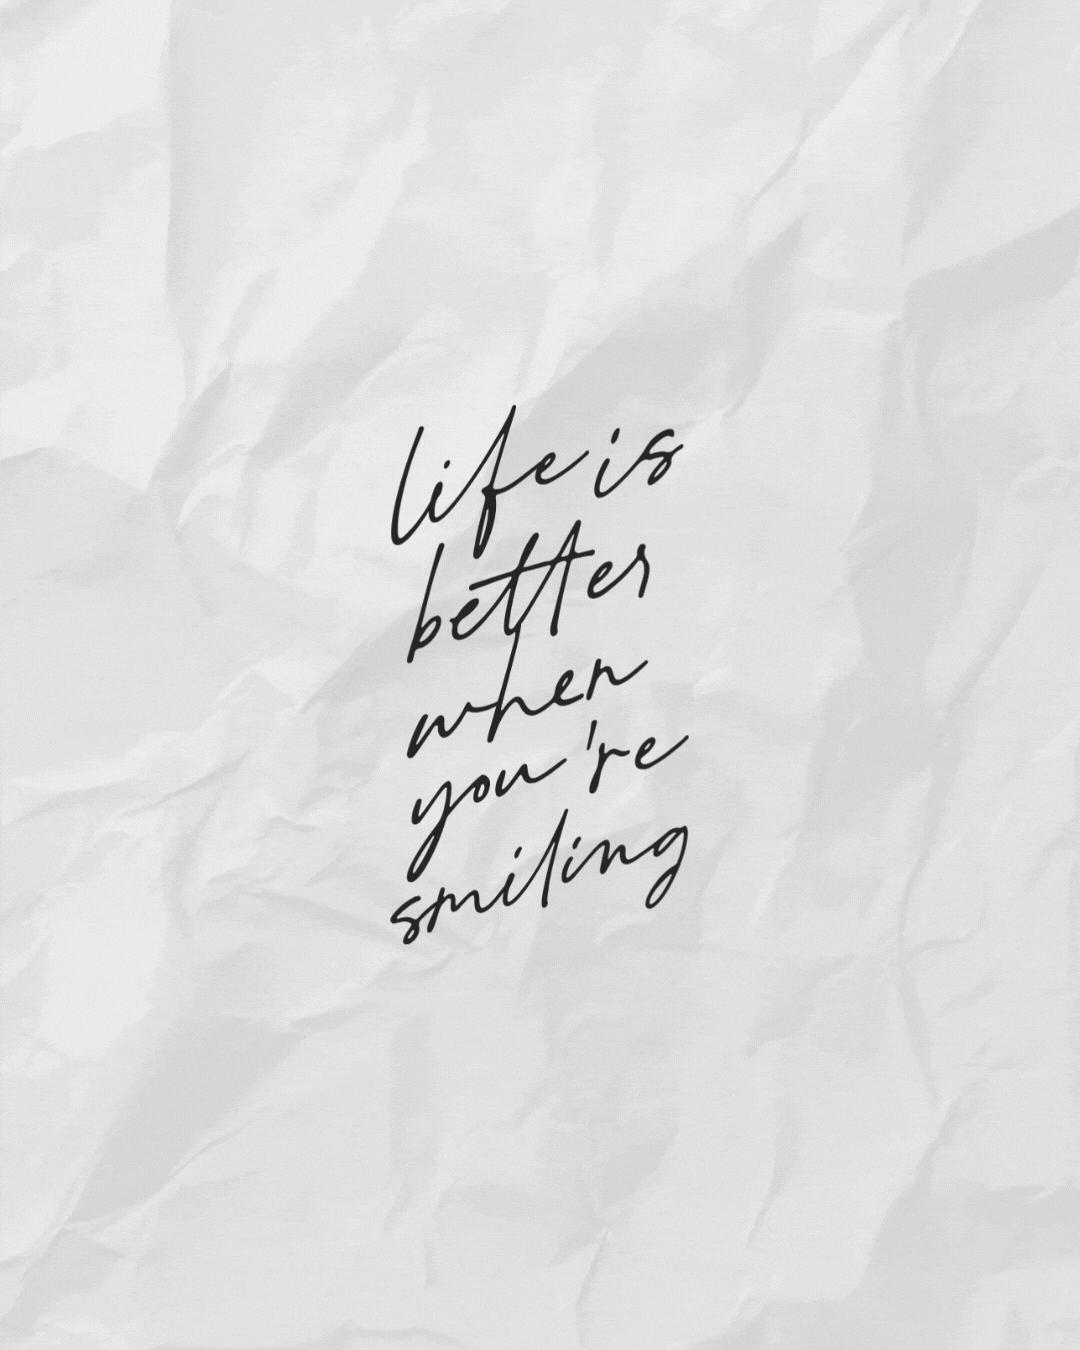 life is
better
when
you're
smiling